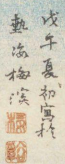 戊午夏初寫於
藝海梅溪